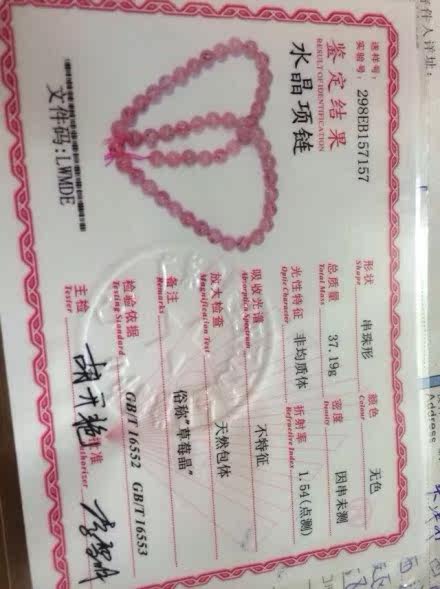 送样号:
实验号: 298EB157157
鉴定结果
RESULT OF IDENTIFICATION
水晶项链
文件码:LWMDE
形状 串珠形 颜色 无色
Shape Colour
总质量 37.19g 密度 因串未测
Total Mass Density
光性特征 非均质体 折射率 1.54(点测)
Optic Character Refractive Index
吸收光谱 不特征
Absorption Spectrum
放大检查 天然包体
Magnification Test
备注 俗称"草莓晶"
Remarks
检验依据 GB/T 16552 GB/T 16553
Testing Standard
主检 批准
Tester Authoriser
件人详址:
Address